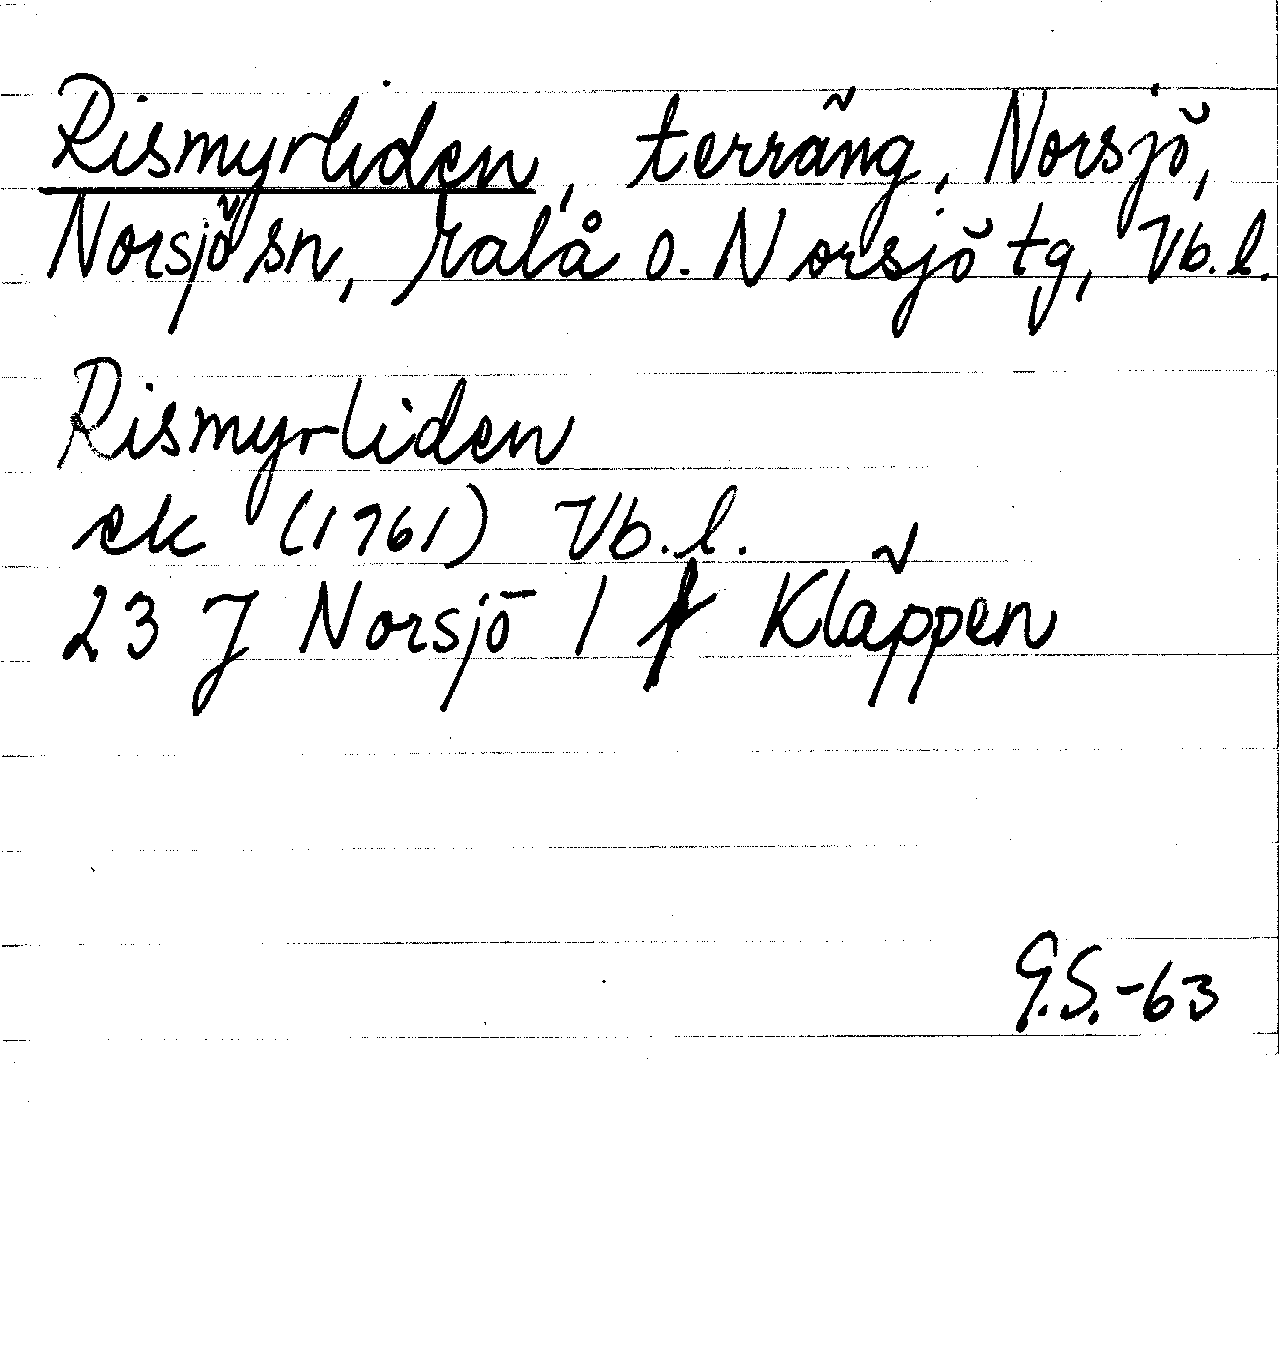 Rismyrliden, terräng, Norsjö,
Norsjö sn, Malå o. Norsjö tg, Vb. l.
Rismyrliden
ek (1961) Vb. l.
23 J Norsjö 1 f Kläppen
G.S.-63